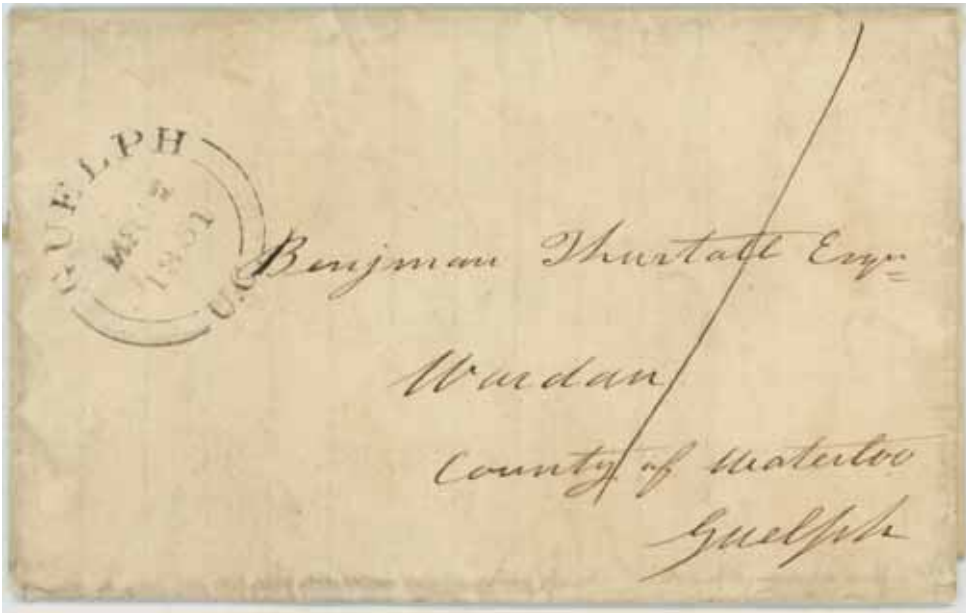 GUELPH
1851
U.C.
Benjman Thurtall Esqr
Wardan
County of Waterloo
Guelph